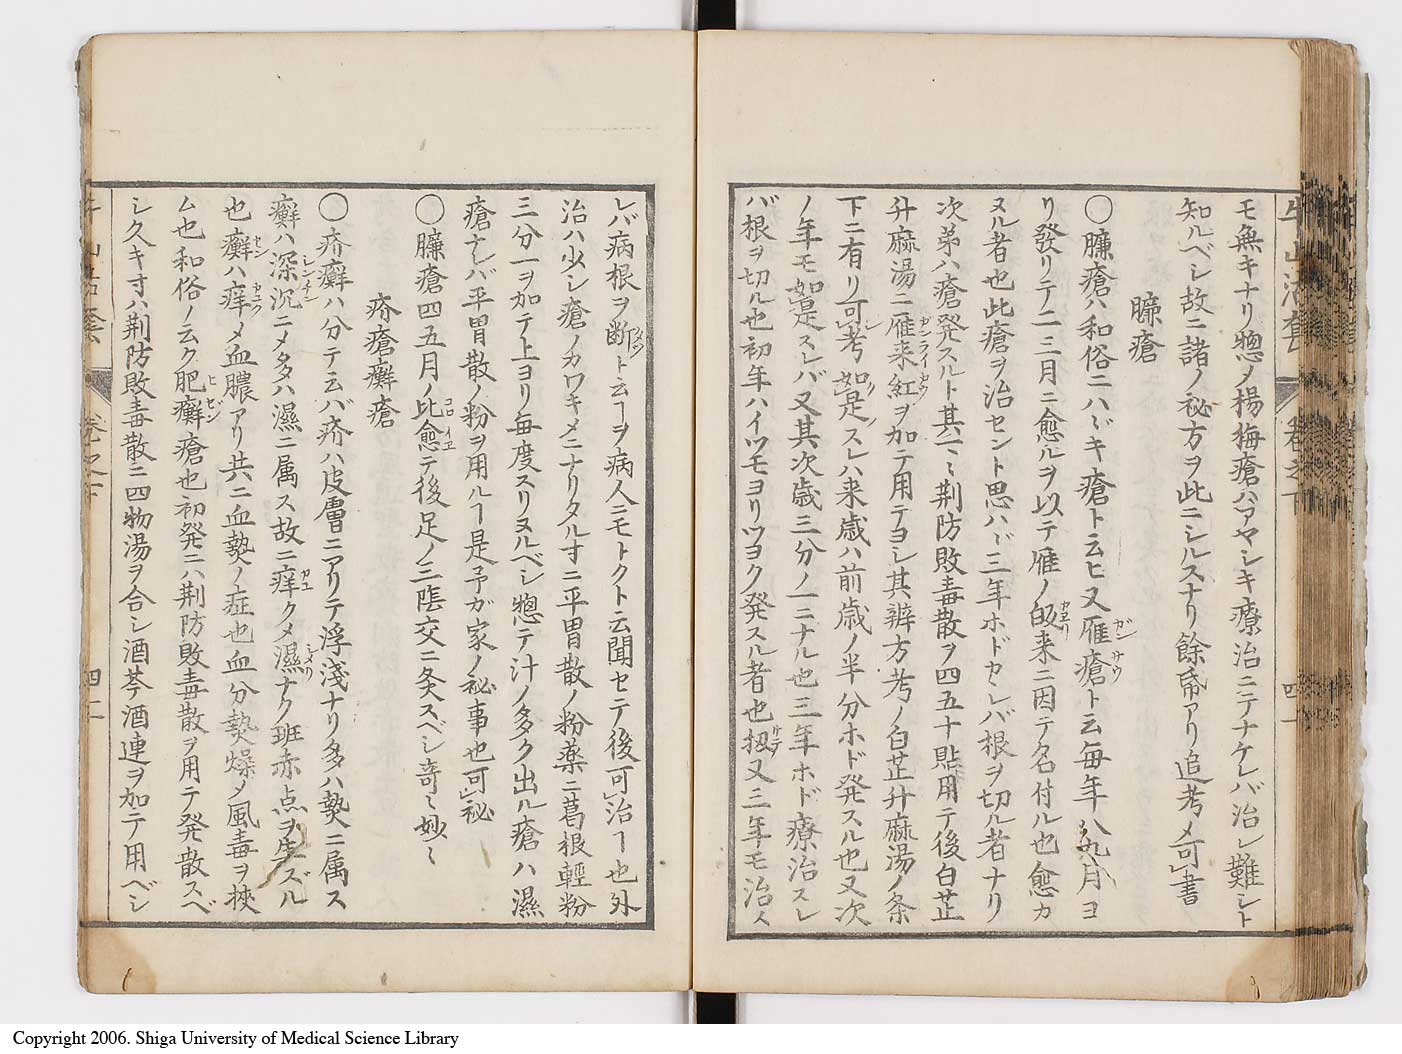 モ無キナリ惣ノ楊梅瘡ハアヤシキ療治ニテナケレバ治シ難シト
知ルベシ故ニ諸ノ秘方ヲ此ニシルスナリ餘帋アリ追考メ可書
臁瘡
〇臁瘡ハ和俗ニハヾキ瘡ト云ヒ又雁瘡ト云毎年八九八月ヨ
リ發リテ二三月ニ愈ルヲ以テ雁ノ皈来ニ因テ名付ル也愈カ
ヌル者也此瘡ヲ治セント思ハヾ三年ホドセレバ根ヲ切ル者ナリ
次第ハ瘡発スルト其一ヽ荆防敗毒散ヲ四五十貼用テ後白芷
升麻湯ニ雁来紅ヲ加テ用テヨシ其辨方考ノ白芷升麻湯ノ条
下ニ有リ可考如是スレハ来歳ハ前歳ノ半分ホド発スル也又次
ノ年モ如是スレバ又其次歳三分ノ一ニナル也三年ホド療治スレ
バ根ヲ切ル也初年ハイツモヨリツヨク発スル者也扨又三年モ治ス
牛山活套 卷之下 四十一
レバ病根ヲ断ト云ヿヲ病人ニモトクト云聞セテ後可治ヿ也外
治ハ少シ瘡ノカワキメニナリタル寸ニ平胃散ノ粉薬ニ葛根輕粉
三分一ヲ加テ上ヨリ毎度スリヌルベシ惣テ汁ノ多ク出ル瘡ハ濕
瘡ナレバ平胃散ノ粉ヲ用ルヿ是予ガ家ノ秘事也可秘
〇臁瘡四五月ノ比愈テ後足ノ三陰交ニ灸スベシ奇ヽ妙ヽ
疥瘡癬瘡
〇疥癬ハ分テ云バ疥ハ皮膚ニアリテ浮淺ナリ多ハ𤍠ニ属ス
癬ハ深沉ニメ多ハ濕ニ属ス故ニ痒クメ濕ナク班赤点ヲ生ズル
也癬ハ痒メ血膿アリ共ニ血𤍠ノ症也血分𤍠燥メ風毒ヲ挾
ム也和俗ノ云ク肥癬瘡也初発ニハ荆防敗毒散ヲ用テ発散スベ
シ久キ寸ハ荆防敗毒散ニ四物湯ヲ合シ酒芩酒連ヲ加テ用ベシ
卷之下
Copyright 2006. Shiga University of Medical Science Library